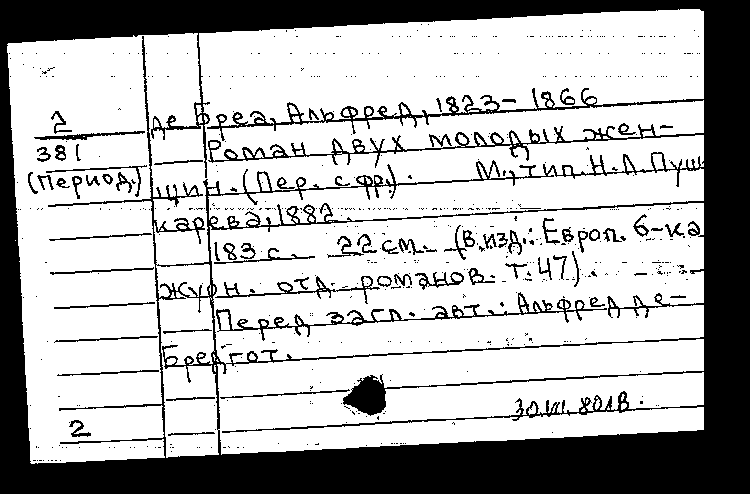 2
381
(Период.)
де Бреа, Альфред, 1823-1866
Роман двух молодых жен-
щин. (Пер. с фр.). М., тип. Н.Л. Пуш
карева, 1882.
183 с. 22 см. (В изд.: Европ. б-ка
журн. отд. романов. т. 47).
Перед загл. авт.: Альфред де-
Бредгот.
30.VII.80
2